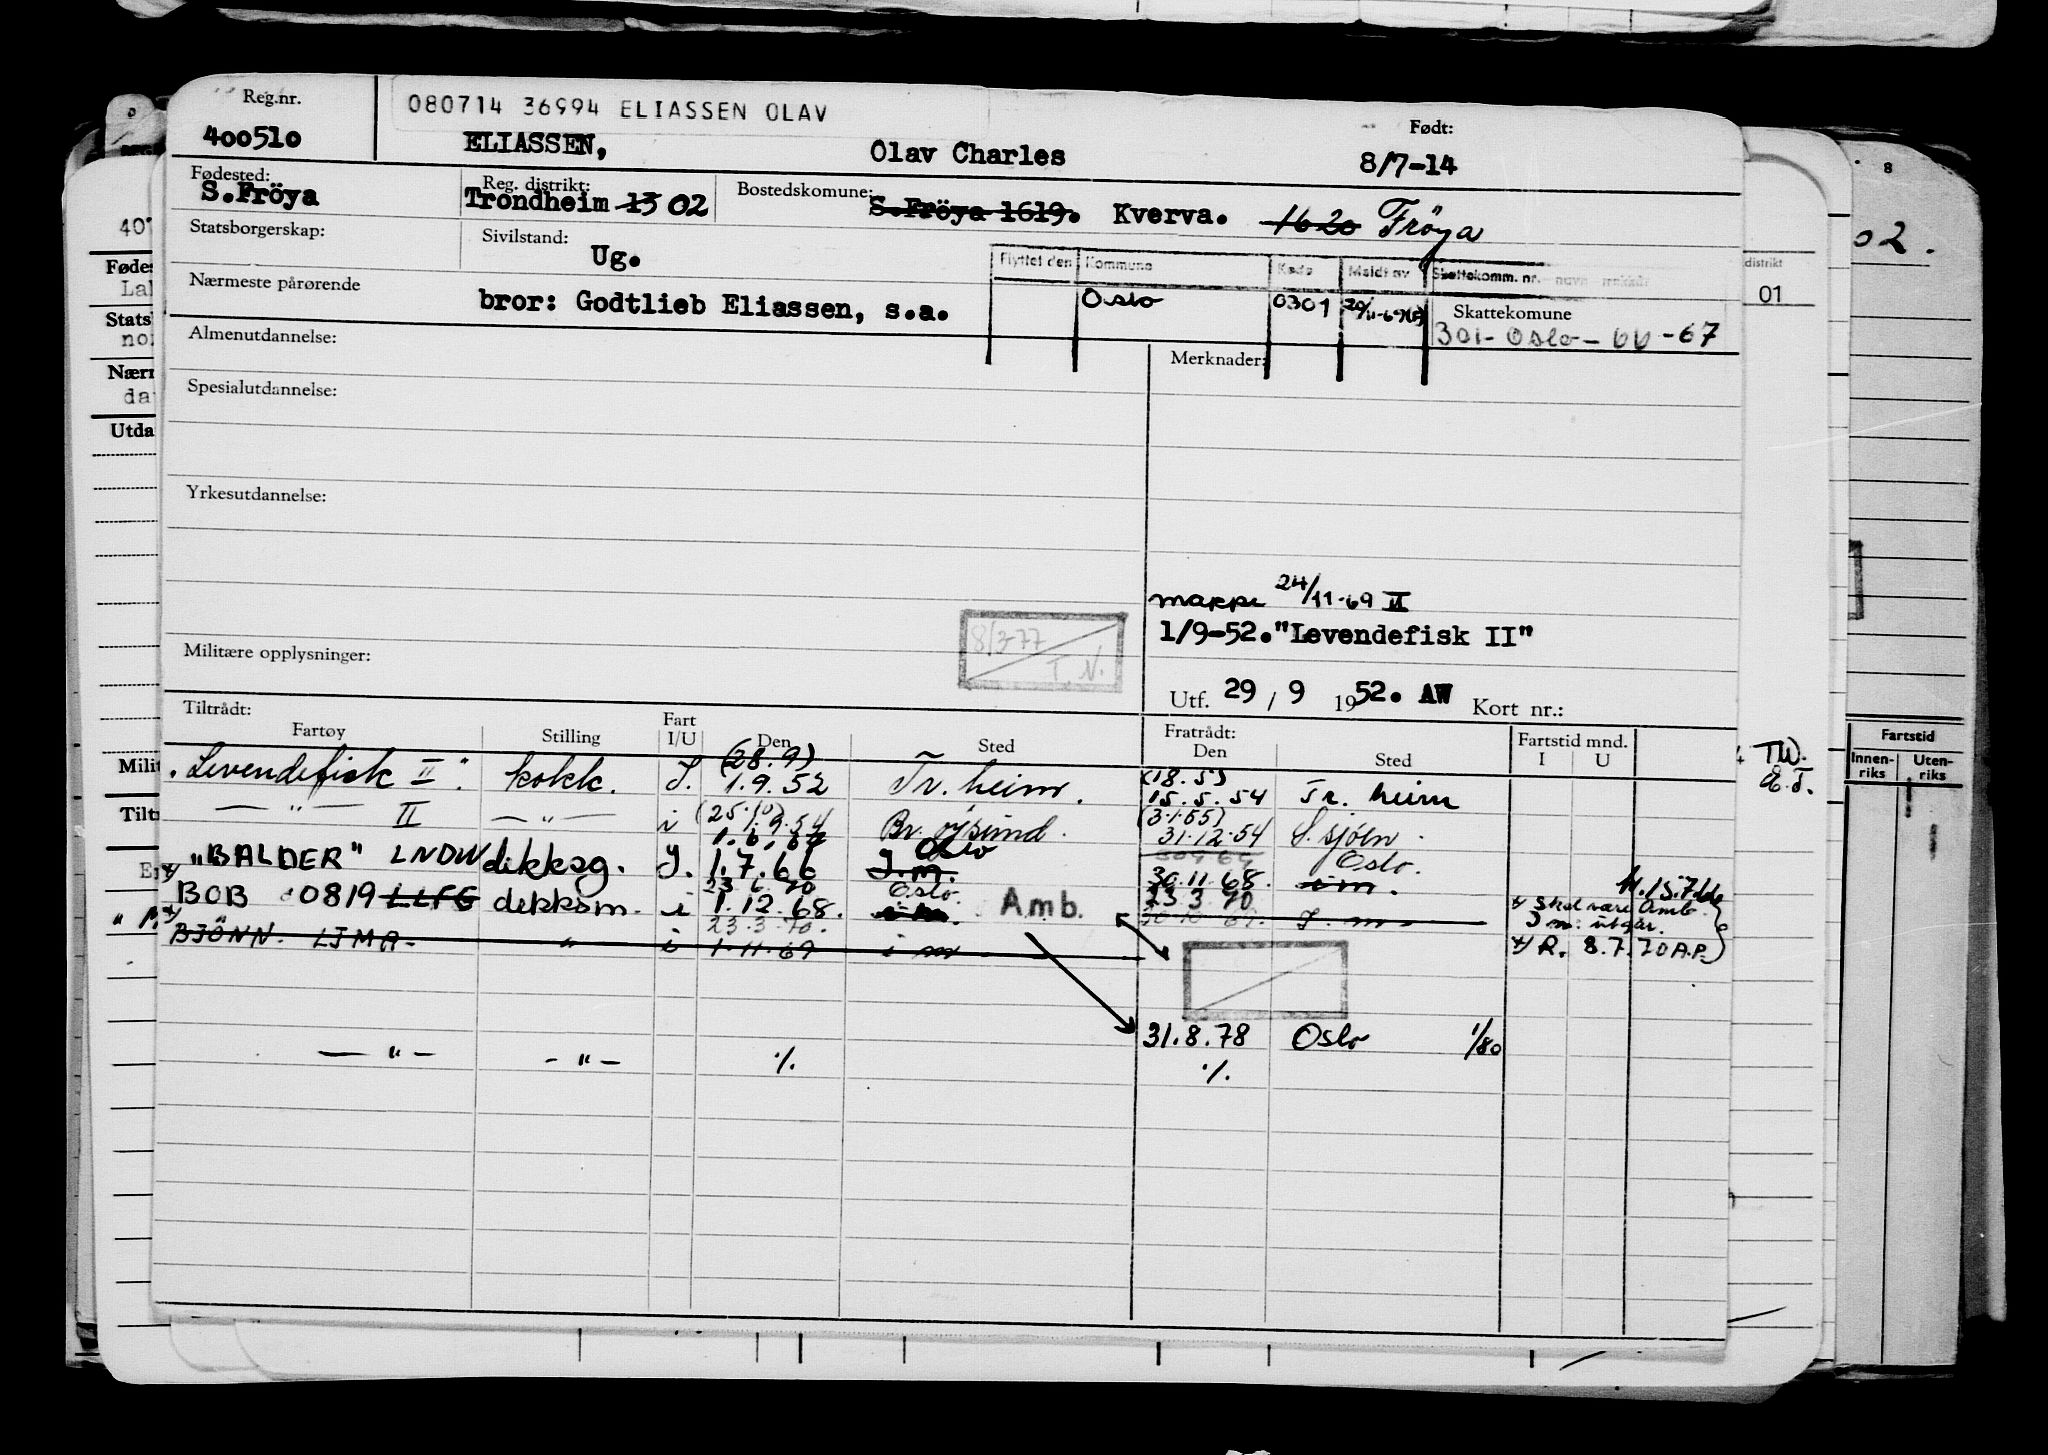 Reg.nr.
080714 36994 ELIASSEN OLAV
Født:
400510 ELIASSEN, Olav Charles 8/7-14
Fødested: Reg. distrikt: Bostedskomune:
S.Fröya Trondheim 13 02 S.Fröya 1619. Kverva. 1620 Fröya
Statsborgerskap: Sivilstand:
Ug.
Flyttet den Kommune Kode Meldt av Skattekomm. nr.
Nærmeste pårørende
bror: Godtlieb Eliassen, s.a.
Oslo 0301
Skattekomune
301-Oslo-66-67
Almenutdannelse:
Merknader:
Spesialutdannelse:
Yrkesutdannelse:
mappe 24/11-69
1/9-52."Levendefisk II"
8/3-77
T. N.
Militære opplysninger:
Utf. 29 / 9 1952. AW Kort nr.:
Tiltrådt: Fratrådt:
Fartøy Stilling Fart I/U Den Sted Den Sted Fartstid mnd. I U
(28.9) (18.5)
"Levendefisk II". kokk. I. 1.9.52 Tr.heim. 15.5.54 Tr. heim
(25.10) (3.1.55)
— " — II — " — i 1.9.54 Br. øysund. 31.12.54 S.sjøen.
Oslo
"BALDER" LNDW dekksg. I. 1.7.66 I.m. 30.11.68. Oslo. i m.
23.6.70 Oslo. 23 3 70
BOB 0819 LLFG dekksm. i 1.12.68. i m. Amb. I. m
x) skal være Amb.
I m: utgår.
23.3.70.
BJÖNN. LJMA. " i 1.11.69 i m
x) R. 8.7.70 A.P.
31.8.78 Oslo 1/80
— " — - " — ./. ./.
02.
8
distrikt
01
Fartstid
Innenriks Utenriks
TW.
E.T.
Fødes
Lal
Stats
no
Nærn
da
Utda
Milit
Tiltr